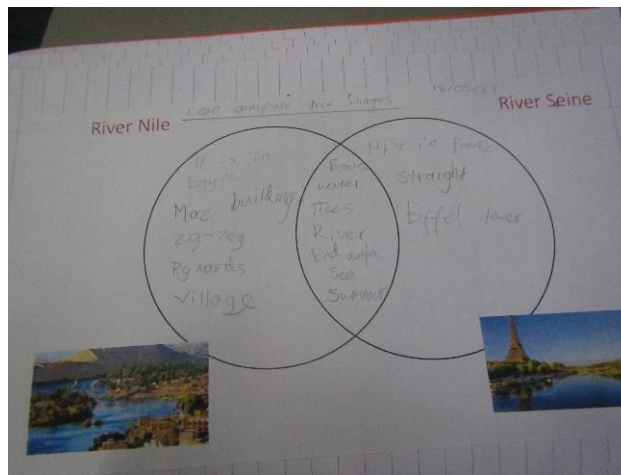 I can comphise two images
River Nile
River Seine
It is in
Egypt
Moz building
zig-zeg
Pymards
village
Boats
water
trees
River
End
Sea
Summer
It is in France
straight
Eiffel tower